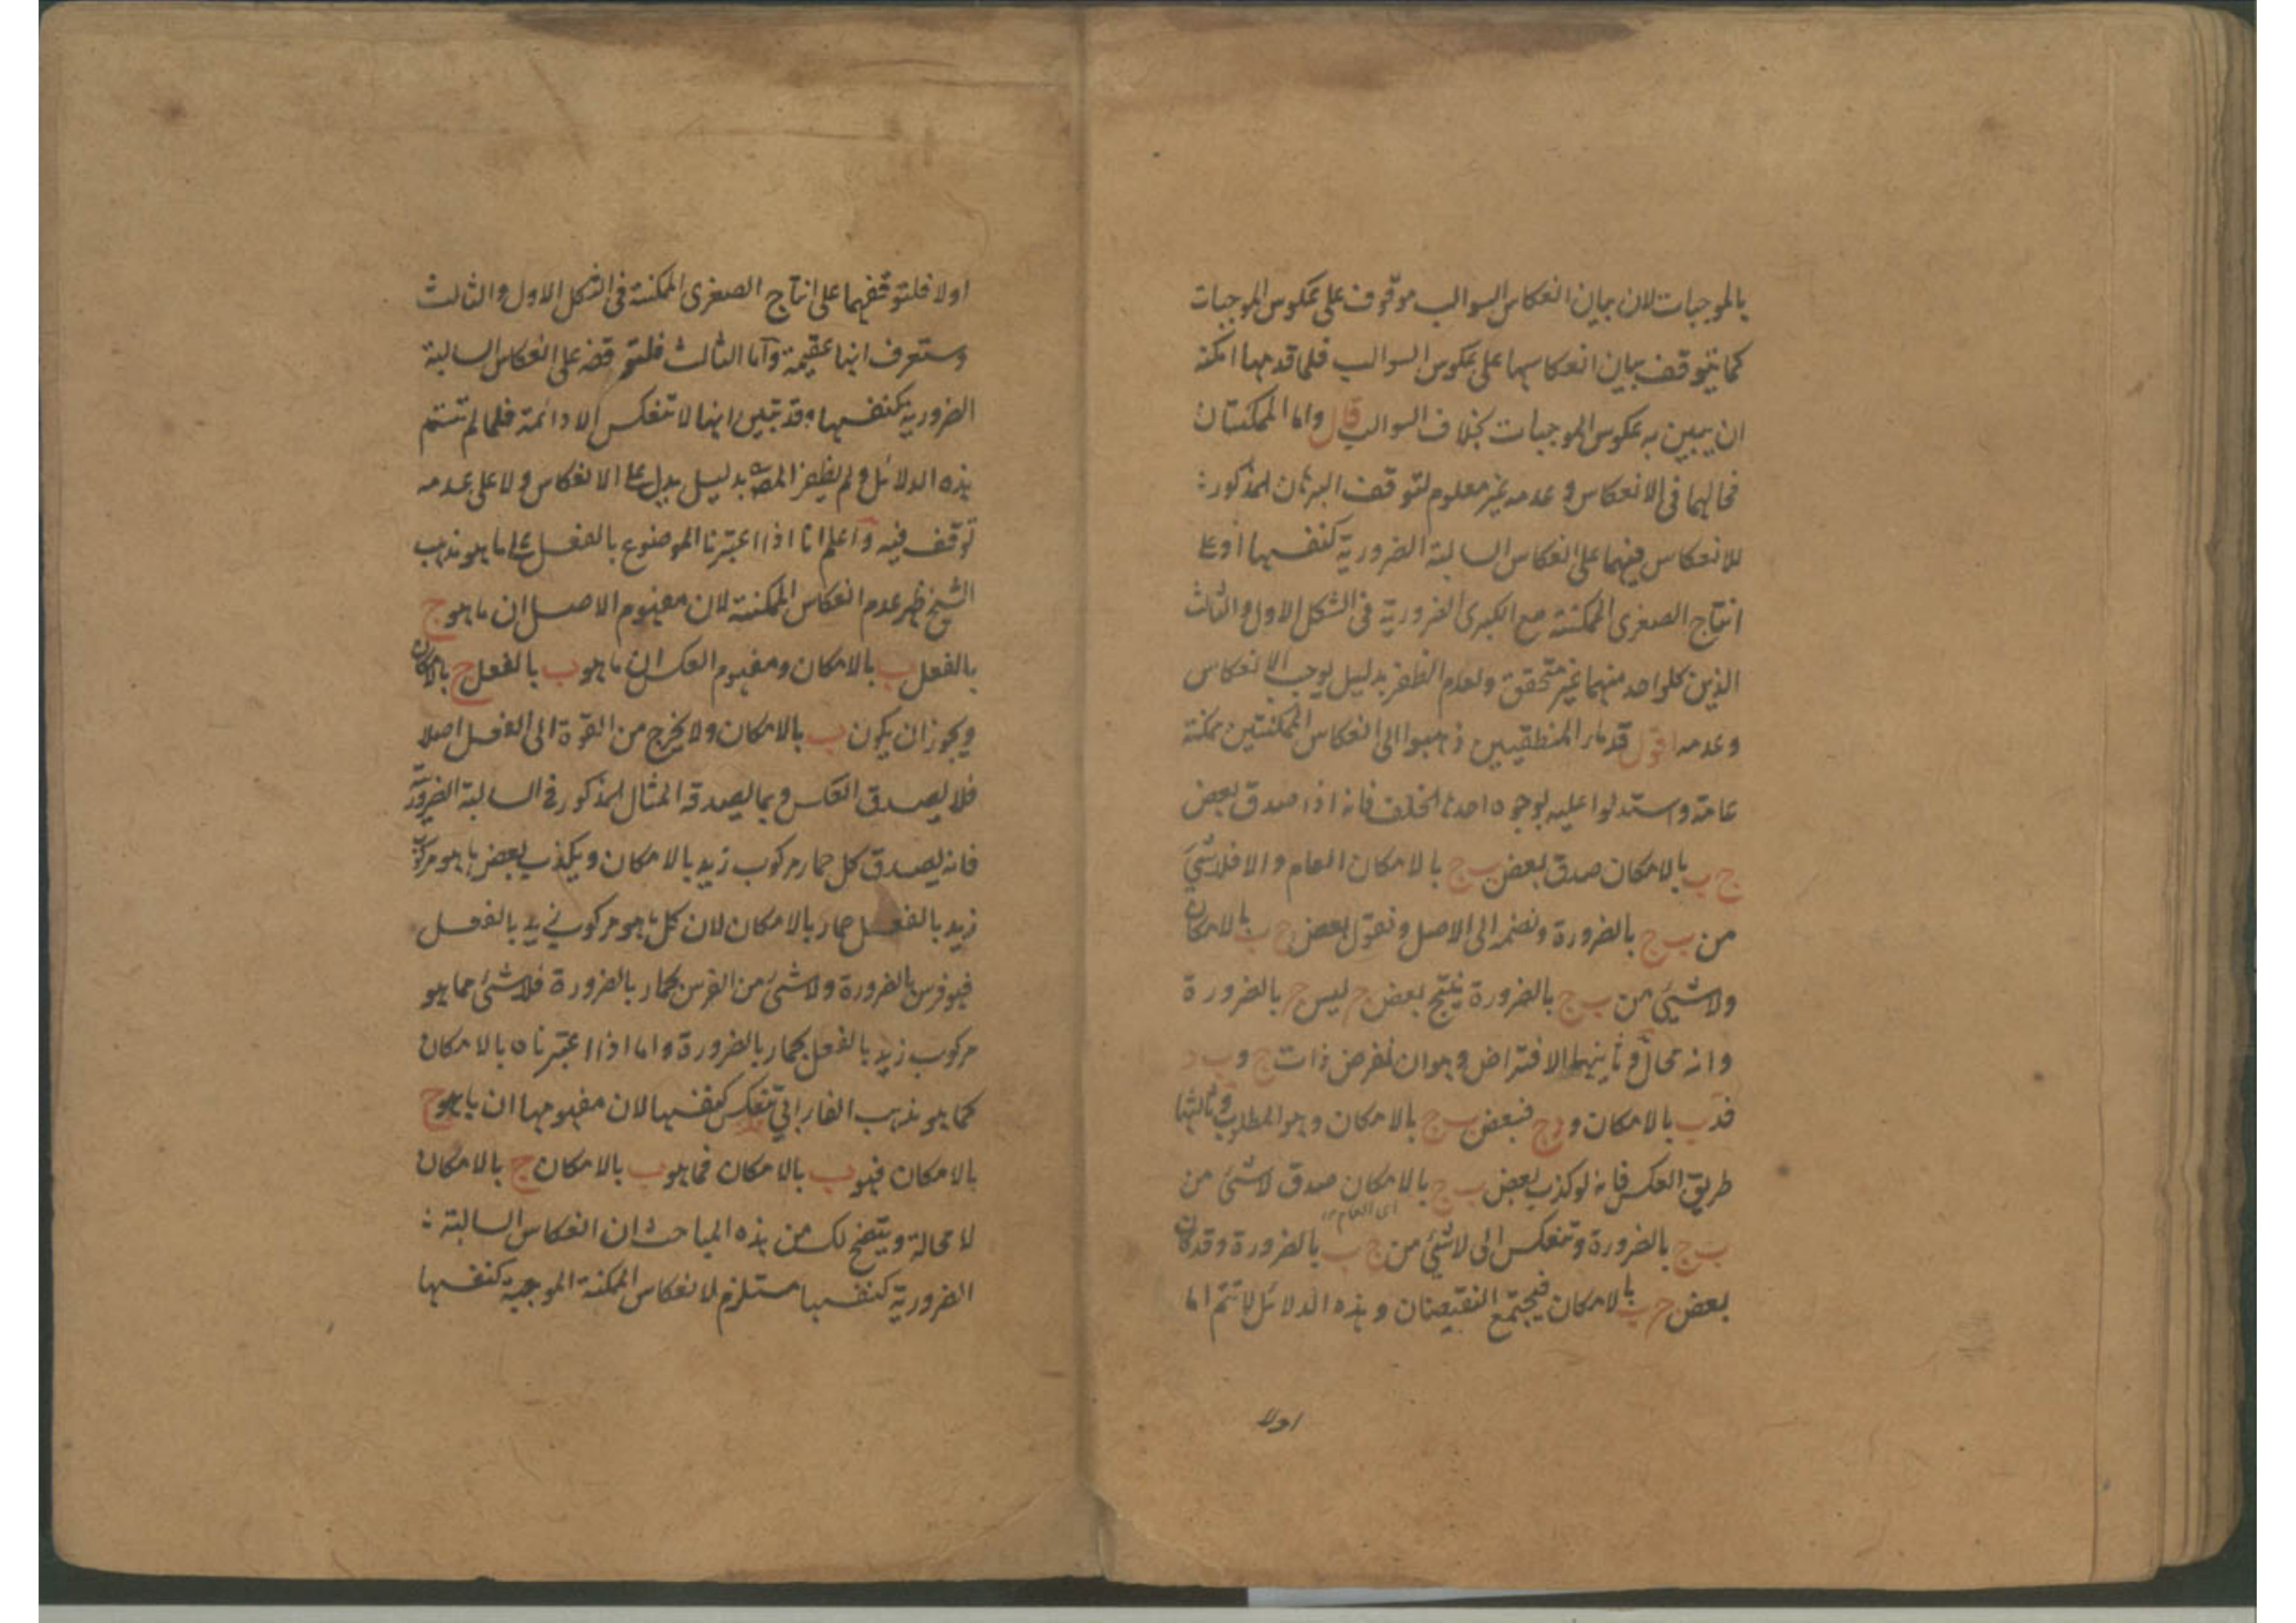 بالموجبات لان بيان انعكاس السوالب موقوف على عكوس الموجبات
كما يتوقف بيان انعكاسها على عكوس السوالب فلما قدمها امكنه
ان يبين به عكوس الموجبات بخلاف السوالب قال واما الممكنتان
فحالهما فى الانعكاس و عدمه غير معلوم لتوقف البرهان المذكور :
للانعكاس فيهما على انعكاس السالبة الضرورية كنفسها او على
انتاج الصغرى الممكنة مع الكبرى الضرورية فى الشكل الاول والثالث
الذين كلواحد منهما غير متحقق ولعدم الظفر بدليل يوجب الانعكاس
وعدمه اقول قدماء المنطقيين ذهبوا الى انعكاس الممكنتين ممكنة
عامة واستدلوا عليه بوجوه احدها الخلف فانه اذا صدق بعض
ج ب بالامكان صدق بعض ب ج بالامكان العام والا فلاشئ
من ب ج بالضرورة ونضمه الى الاصل ونقول بعض ج ب بالامكان
ولاشئ من ب ج بالضرورة ينتج بعض ج ليس ج بالضرورة
وانه محال وثانيها الافتراض وهو ان نفرض ذات ج و ب د
فد ب بالامكان و د ج فبعض ب ج بالامكان وهو المطلوب وثالثها
طريق العكس فانه لو كذب بعض ب ج بالامكان صدق لاشئ من
اى العام
ب ج بالضرورة وتنعكس الى لاشئ من ج ب بالضرورة وقد كان
بعض ج ب بالامكان فيجتمع النقيضان وهذه الدلائل لا تتم اما
اولا
اولا فلتوقفهما على انتاج الصغرى الممكنة فى الشكل الاول والثالث
وستعرف انها عقيمة واما الثالث فلتوقفه على انعكاس السالبة
الضرورية كنفسها وقد تبين انها لا تنعكس الا دائمة فلما لم تتم
هذه الدلائل ولم يظفر المص بدليل يدل على الانعكاس ولا على عدمه
توقف فيه واعلم انا اذا اعتبرنا الموضوع بالفعل على ما هو مذهب
الشيخ ظهر عدم انعكاس الممكنة لان مفهوم الاصل ان ما هو ج
بالفعل ب بالامكان ومفهوم العكس ان ما هو ب بالفعل ج بالامكان
ويجوز ان يكون ب بالامكان ولا يخرج من القوة الى الفعل اصلا
فلا يصدق العكس ومما يصدقه المثال المذكور فى السالبة الضرورية
فانه يصدق كل حمار مركوب زيد بالامكان ويكذب بعض ما هو مركوب
زيد بالفعل حمار بالامكان لان كل ما هو مركوب زيد بالفعل
فهو فرس بالضرورة ولاشئ من الفرس بحمار بالضرورة فلاشئ مما هو
مركوب زيد بالفعل بحمار بالضرورة واما اذا اعتبرناه بالامكان
كما هو مذهب الفارابي تنعكس كنفسها لان مفهومها ان ما هو ج
بالامكان فهو ب بالامكان فما هو ب بالامكان ج بالامكان
لا محالة ويتضح لك من هذه المباحث ان انعكاس السالبة :
الضرورية كنفسها مستلزم لانعكاس الممكنة الموجبة كنفسها